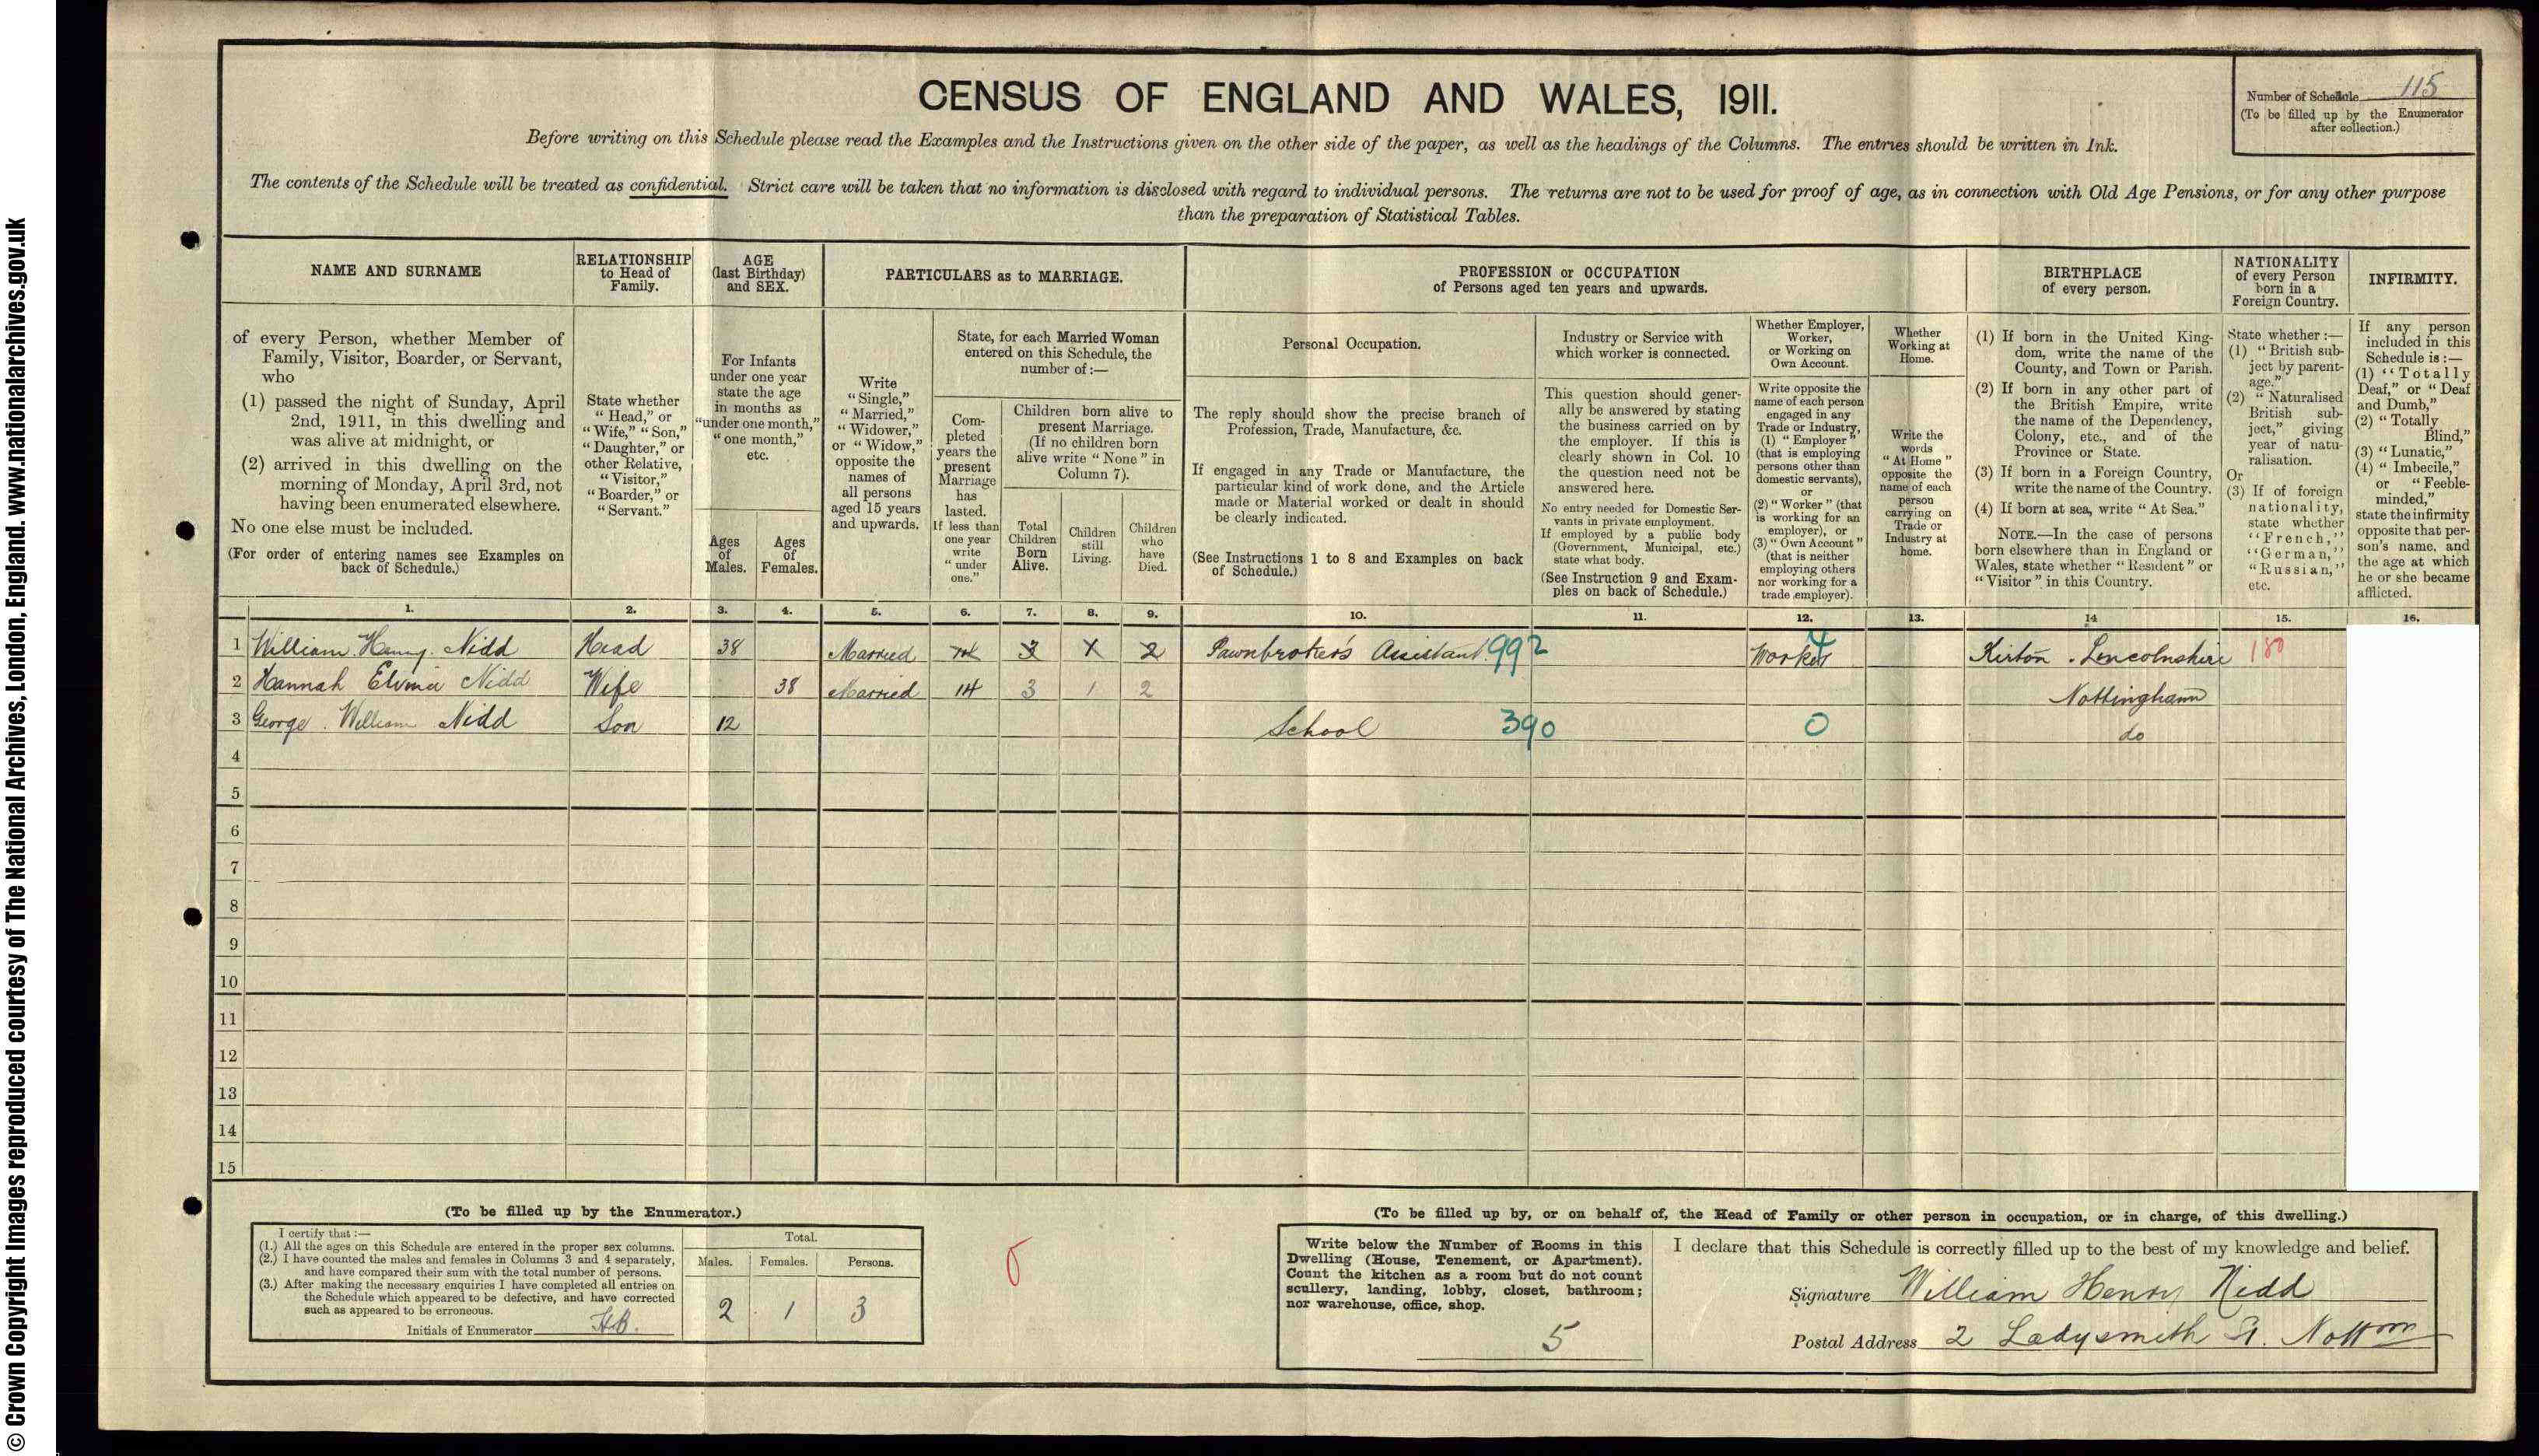 © Crown Copyright Images reproduced courtesy of The National Archives, London, England. www.nationalarchives.gov.uk
CENSUS OF ENGLAND AND WALES, 1911.
Number of Schedule 115
(To be filled up by the Enumerator
after collection.)
Before writing on this Schedule please read the Examples and the Instructions given on the other side of the paper, as well as the headings of the Columns. The entries should be written in Ink.
The contents of the Schedule will be treated as confidential. Strict care will be taken that no information is disclosed with regard to individual persons. The returns are not to be used for proof of age, as in connection with Old Age Pensions, or for any other purpose
than the preparation of Statistical Tables.
NAME AND SURNAME
of every Person, whether Member of
Family, Visitor, Boarder, or Servant,
who
(1) passed the night of Sunday, April
2nd, 1911, in this dwelling and
was alive at midnight, or
(2) arrived in this dwelling on the
morning of Monday, April 3rd, not
having been enumerated elsewhere.
No one else must be included.
(For order of entering names see Examples on
back of Schedule.)
RELATIONSHIP
to Head of
Family.
State whether
"Head," or
"Wife," "Son,"
"Daughter," or
other Relative,
"Visitor,"
"Boarder," or
"Servant."
AGE
(last Birthday)
and SEX.
For Infants
under one year
state the age
in months as
"under one month,"
"one month,"
etc.
Ages
of
Males.
Ages
of
Females.
PARTICULARS as to MARRIAGE.
Write
"Single,"
"Married,"
"Widower,"
or "Widow,"
opposite the
names of
all persons
aged 15 years
and upwards.
State, for each Married Woman
entered on this Schedule, the
number of:—
Com-
pleted
years the
present
Marriage
has
lasted.
If less than
one year
write
"under
one."
Children born alive to
present Marriage.
(If no children born
alive write "None" in
Column 7).
Total
Children
Born
Alive.
Children
still
Living.
Children
who
have
Died.
PROFESSION or OCCUPATION
of Persons aged ten years and upwards.
Personal Occupation.
The reply should show the precise branch of
Profession, Trade, Manufacture, &c.
If engaged in any Trade or Manufacture, the
particular kind of work done, and the Article
made or Material worked or dealt in should
be clearly indicated.
(See Instructions 1 to 8 and Examples on back
of Schedule.)
Industry or Service with
which worker is connected.
This question should gener-
ally be answered by stating
the business carried on by
the employer. If this is
clearly shown in Col. 10
the question need not be
answered here.
No entry needed for Domestic Ser-
vants in private employment.
If employed by a public body
(Government, Municipal, etc.)
state what body.
(See Instruction 9 and Exam-
ples on back of Schedule.)
Whether Employer,
Worker,
or Working on
Own Account.
Write opposite the
name of each person
engaged in any
Trade or Industry,
(1) "Employer"
(that is employing
persons other than
domestic servants),
or
(2) "Worker" (that
is working for an
employer), or
(3) "Own Account"
(that is neither
employing others
nor working for a
trade employer).
Whether
Working at
Home.
Write the
words
"At Home"
opposite the
name of each
person
carrying on
Trade or
Industry at
home.
BIRTHPLACE
of every person.
(1) If born in the United King-
dom, write the name of the
County, and Town or Parish.
(2) If born in any other part of
the British Empire, write
the name of the Dependency,
Colony, etc., and of the
Province or State.
(3) If born in a Foreign Country,
write the name of the Country.
(4) If born at sea, write "At Sea."
NOTE.—In the case of persons
born elsewhere than in England or
Wales, state whether "Resident" or
"Visitor" in this Country.
NATIONALITY
of every Person
born in a
Foreign Country.
State whether:—
(1) "British sub-
ject by parent-
age."
(2) "Naturalised
British sub-
ject," giving
year of natu-
ralisation.
Or
(3) If of foreign
nationality,
state whether
"French,"
"German,"
"Russian,"
etc.
INFIRMITY.
If any person
included in this
Schedule is:—
(1) "Totally
Deaf," or "Deaf
and Dumb,"
(2) "Totally
Blind,"
(3) "Lunatic,"
(4) "Imbecile,"
or "Feeble-
minded,"
state the infirmity
opposite that per-
son's name, and
the age at which
he or she became
afflicted.
1. 2. 3. 4. 5. 6. 7. 8. 9. 10. 11. 12. 13. 14 15. 16.
1 William Henry Nidd Head 38 Married 3 2 Pawnbroker's Assistant 992 Worker 4 Kirton . Lincolnshire 180
2 Hannah Elvina Nidd Wife 38 Married 14 3 1 2 Nottingham
3 George William Nidd Son 12 School 390 0 do
4
5
6
7
8
9
10
11
12
13
14
15
(To be filled up by the Enumerator.)
I certify that:—
(1.) All the ages on this Schedule are entered in the proper sex columns.
(2.) I have counted the males and females in Columns 3 and 4 separately,
and have compared their sum with the total number of persons.
(3.) After making the necessary enquiries I have completed all entries on
the Schedule which appeared to be defective, and have corrected
such as appeared to be erroneous.
Initials of Enumerator HB.
Total.
Males. Females. Persons.
2 1 3
(To be filled up by, or on behalf of, the Head of Family or other person in occupation, or in charge, of this dwelling.)
Write below the Number of Rooms in this
Dwelling (House, Tenement, or Apartment).
Count the kitchen as a room but do not count
scullery, landing, lobby, closet, bathroom;
nor warehouse, office, shop.
5
I declare that this Schedule is correctly filled up to the best of my knowledge and belief.
Signature William Henry Nidd
Postal Address 2 Ladysmith St. Nottm